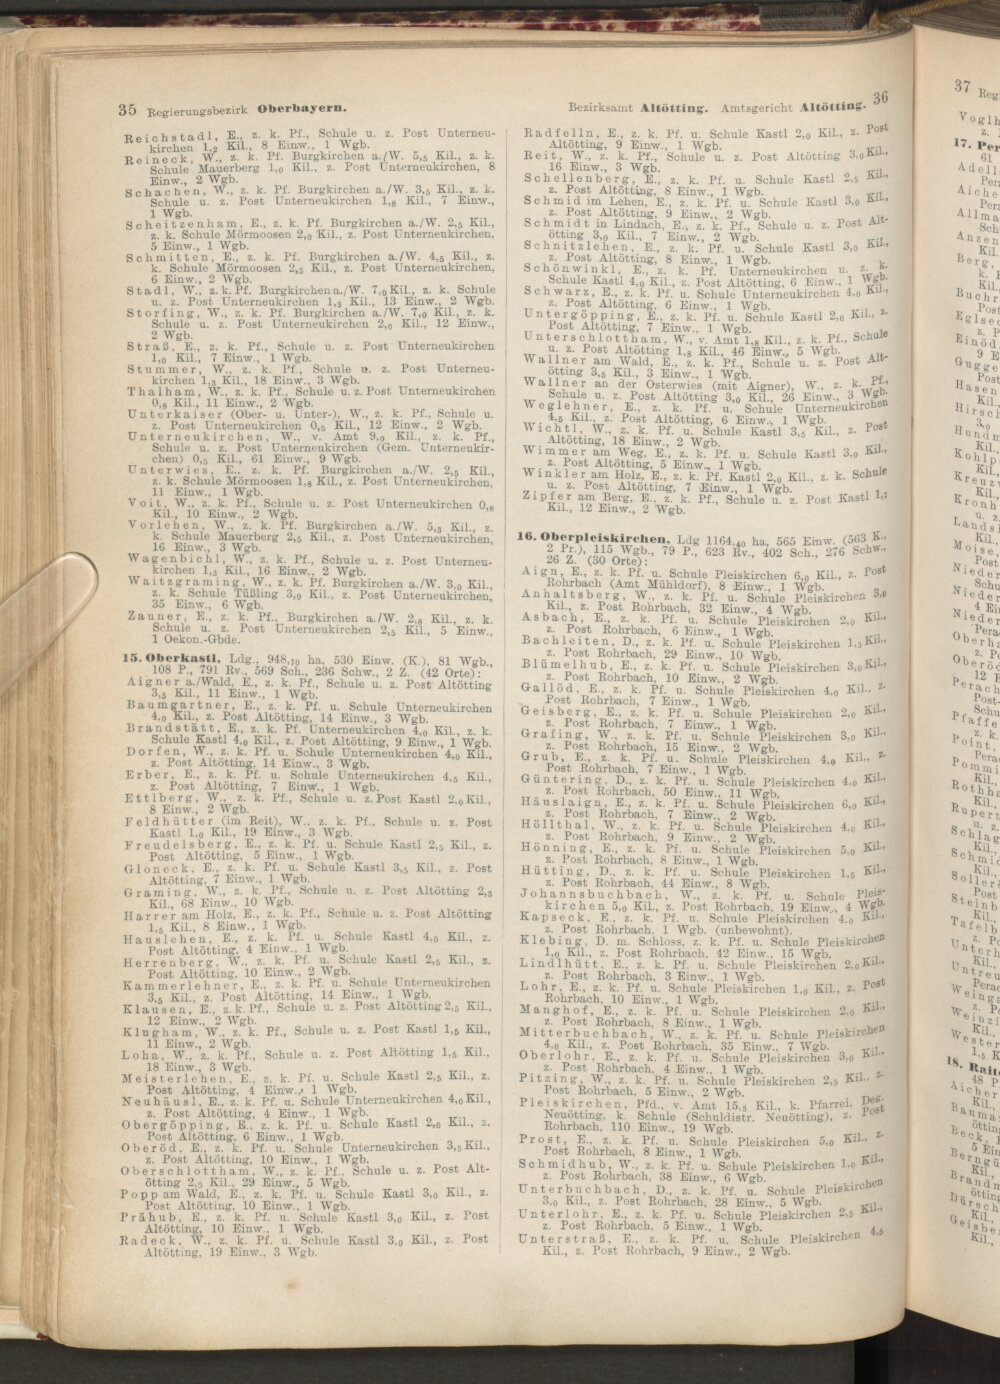 35 Regierungsbezirk Oberbayern.
Reichstadl, E., z. k. Pf., Schule u. z. Post Unterneu-
kirchen 1,2 Kil., 8 Einw., 1 Wgb.
Reineck, W., z. k. Pf. Burgkirchen a./W. 5,5 Kil., z. k.
Schule Mauerberg 1,0 Kil., z. Post Unterneukirchen, 8
Einw., 2 Wgb.
Schachen, W., z. k. Pf. Burgkirchen a./W. 3,5 Kil., z. k.
Schule u. z. Post Unterneukirchen 1,8 Kil., 7 Einw.,
1 Wgb.
Scheitzenham, E., z. k. Pf. Burgkirchen a./W. 2,5 Kil.,
z. k. Schule Mörmoosen 2,0 Kil., z. Post Unterneukirchen,
5 Einw., 1 Wgb.
Schmitten, E., z. k. Pf. Burgkirchen a./W. 4,5 Kil., z.
k. Schule Mörmoosen 2,5 Kil., z. Post Unterneukirchen,
6 Einw., 2 Wgb.
Stadl, W., z. k. Pf. Burgkirchen a./W. 7,0 Kil., z. k. Schule
u. z. Post Unterneukirchen 1,3 Kil., 13 Einw., 2 Wgb.
Storfing, W., z. k. Pf. Burgkirchen a./W. 7,0 Kil., z. k.
Schule u. z. Post Unterneukirchen 2,0 Kil., 12 Einw.,
2 Wgb.
Straß, E., z. k. Pf., Schule u. z. Post Unterneukirchen
1,0 Kil., 7 Einw., 1 Wgb.
Stummer, W., z. k. Pf., Schule u. z. Post Unterneu-
kirchen 1,3 Kil., 18 Einw., 3 Wgb.
Thalham, W., z. k. Pf., Schule u. z. Post Unterneukirchen
0,8 Kil., 11 Einw., 2 Wgb.
Unterkaiser (Ober- u. Unter-), W., z. k. Pf., Schule u.
z. Post Unterneukirchen 0,5 Kil., 12 Einw., 2 Wgb.
Unterneukirchen, W., v. Amt 9,0 Kil., z. k. Pf.,
Schule u. z. Post Unterneukirchen (Gem. Unterneukir-
chen) 0,5 Kil., 61 Einw., 9 Wgb.
Unterwies, E., z. k. Pf. Burgkirchen a./W. 2,5 Kil.,
z. k. Schule Mörmoosen 1,8 Kil., z. Post Unterneukirchen,
11 Einw., 1 Wgb.
Voit, W., z. k. Pf., Schule u. z. Post Unterneukirchen 0,8
Kil., 10 Einw., 2 Wgb.
Vorlehen, W., z. k. Pf. Burgkirchen a./W. 5,3 Kil., z.
k. Schule Mauerberg 2,5 Kil., z. Post Unterneukirchen,
16 Einw., 3 Wgb.
Wagenbichl, W., z. k. Pf., Schule u. z. Post Unterneu-
kirchen 1,3 Kil., 16 Einw., 2 Wgb.
Waitzgraming, W., z. k. Pf. Burgkirchen a./W. 3,0 Kil.,
z. k. Schule Tüßling 3,0 Kil., z. Post Unterneukirchen,
35 Einw., 6 Wgb.
Zauner, E., z. k. Pf., Burgkirchen a./W. 2,8 Kil., z. k.
Schule u. z. Post Unterneukirchen 2,5 Kil., 5 Einw.,
1 Oekon.-Gbde.
15. Oberkastl, Ldg., 948,70 ha, 530 Einw. (K.), 81 Wgb.,
108 P., 791 Rv., 569 Sch., 236 Schw., 2 Z. (42 Orte):
Aigner a./Wald, E., z. k. Pf., Schule u. z. Post Altötting
3,5 Kil., 11 Einw., 1 Wgb.
Baumgartner, E., z. k. Pf. u. Schule Unterneukirchen
4,0 Kil., z. Post Altötting, 14 Einw., 3 Wgb.
Brandstätt, E., z. k. Pf. Unterneukirchen 4,0 Kil., z. k.
Schule Kastl 4,0 Kil., z. Post Altötting, 9 Einw., 1 Wgb.
Dorfen, W., z. k. Pf. u. Schule Unterneukirchen 4,0 Kil.,
z. Post Altötting, 14 Einw., 3 Wgb.
Erber, E., z. k. Pf. u. Schule Unterneukirchen 4,5 Kil.,
z. Post Altötting, 7 Einw., 1 Wgb.
Ettlberg, W., z. k. Pf., Schule u. z. Post Kastl 2,0 Kil.,
8 Einw., 2 Wgb.
Feldhütter (im Reit), W., z. k. Pf., Schule u. z. Post
Kastl 1,0 Kil., 19 Einw., 3 Wgb.
Freudelsberg, E., z. k. Pf. u. Schule Kastl 2,5 Kil., z.
Post Altötting, 5 Einw., 1 Wgb.
Gloneck, E., z. k. Pf. u. Schule Kastl 3,5 Kil., z. Post
Altötting, 7 Einw., 1 Wgb.
Graming, W., z. k. Pf., Schule u. z. Post Altötting 2,3
Kil., 68 Einw., 10 Wgb.
Harrer am Holz, E., z. k. Pf., Schule u. z. Post Altötting
1,5 Kil., 8 Einw., 1 Wgb.
Hauslehen, E., z. k. Pf. u. Schule Kastl 4,0 Kil., z.
Post Altötting, 4 Einw., 1 Wgb.
Herrenberg, W., z. k. Pf. u. Schule Kastl 2,5 Kil., z.
Post Altötting, 10 Einw., 2 Wgb.
Kammerlehner, E., z. k. Pf. u. Schule Unterneukirchen
3,5 Kil., z. Post Altötting, 14 Einw., 1 Wgb.
Klausen, E., z. k. Pf., Schule u. z. Post Altötting 2,5 Kil.,
12 Einw., 2 Wgb.
Klugham, W., z. k. Pf., Schule u. z. Post Kastl 1,5 Kil.,
11 Einw., 2 Wgb.
Loha, W., z. k. Pf., Schule u. z. Post Altötting 1,5 Kil.,
18 Einw., 3 Wgb.
Meisterlehen, E., z. k. Pf. u. Schule Kastl 2,5 Kil., z.
Post Altötting, 4 Einw., 1 Wgb.
Neuhäusl, E., z. k. Pf. u. Schule Unterneukirchen 4,0 Kil.,
z. Post Altötting, 4 Einw., 1 Wgb.
Obergöpping, E., z. k. Pf. u. Schule Kastl 2,0 Kil., z.
Post Altötting, 6 Einw., 1 Wgb.
Oberöd, E., z. k. Pf. u. Schule Unterneukirchen 3,5 Kil.,
z. Post Altötting, 10 Einw., 1 Wgb.
Oberschlottham, W., z. k. Pf., Schule u. z. Post Alt-
ötting 2,5 Kil., 29 Einw., 5 Wgb.
Popp am Wald, E., z. k. Pf. u. Schule Kastl 3,0 Kil., z.
Post Altötting, 10 Einw., 1 Wgb.
Prähub, E., z. k. Pf. u. Schule Kastl 3,0 Kil., z. Post
Altötting, 10 Einw., 1 Wgb.
Radeck, W., z. k. Pf. u. Schule Kastl 3,0 Kil., z. Post
Altötting, 19 Einw., 3 Wgb.
Bezirksamt Altötting. Amtsgericht Altötting. 36
Radfelln, E., z. k. Pf. u. Schule Kastl 2,0 Kil., z. Post
Altötting, 9 Einw., 1 Wgb.
Reit, W., z. k. Pf., Schule u. z. Post Altötting 3,0 Kil.,
16 Einw., 3 Wgb.
Schellenberg, E., z. k. Pf. u. Schule Kastl 2,5 Kil.,
z. Post Altötting, 8 Einw., 1 Wgb.
Schmid im Lehen, E., z. k. Pf. u. Schule Kastl 3,0 Kil.,
z. Post Altötting, 9 Einw., 2 Wgb.
Schmidt in Lindach, E., z. k. Pf., Schule u. z. Post Alt-
ötting 3,0 Kil., 7 Einw., 2 Wgb.
Schnitzlehen, E., z. k. Pf. u. Schule Kastl 3,0 Kil.,
z. Post Altötting, 8 Einw., 1 Wgb.
Schönwinkl, E., z. k. Pf. Unterneukirchen u. z. k.
Schule Kastl 4,0 Kil., z. Post Altötting, 6 Einw., 1 Wgb.
Schwarz, E., z. k. Pf. u. Schule Unterneukirchen 4,0 Kil.,
z. Post Altötting, 6 Einw., 1 Wgb.
Untergöpping, E., z. k. Pf. u. Schule Kastl 2,0 Kil., z.
Post Altötting, 7 Einw., 1 Wgb.
Unterschlottham, W., v. Amt 1,8 Kil., z. k. Pf., Schule
u. z. Post Altötting 1,8 Kil., 46 Einw., 5 Wgb.
Wallner am Wald, E., z. k. Pf., Schule u. z. Post Alt-
ötting 3,5 Kil., 3 Einw., 1 Wgb.
Wallner an der Osterwies (mit Aigner), W., z. k. Pf.,
Schule u. z. Post Altötting 3,0 Kil., 26 Einw., 3 Wgb.
Weglehner, E., z. k. Pf. u. Schule Unterneukirchen
4,5 Kil., z. Post Altötting, 6 Einw., 1 Wgb.
Wichtl, W., z. k. Pf. u. Schule Kastl 3,5 Kil., z. Post
Altötting, 18 Einw., 2 Wgb.
Wimmer am Weg, E., z. k. Pf. u. Schule Kastl 3,0 Kil.,
z. Post Altötting, 5 Einw., 1 Wgb.
Winkler am Holz, E., z. k. Pf. Kastl 2,0 Kil., z. k. Schule
u. z. Post Altötting, 7 Einw., 1 Wgb.
Zipfer am Berg, E., z. k. Pf., Schule u. z. Post Kastl 1,7
Kil., 12 Einw., 2 Wgb.
16. Oberpleiskirchen, Ldg 1164,40 ha, 565 Einw. (563 K.,
2 Pr.), 115 Wgb., 79 P., 623 Rv., 402 Sch., 276 Schw.,
26 Z. (30 Orte):
Aign, E., z. k. Pf. u. Schule Pleiskirchen 6,0 Kil., z. Post
Rohrbach (Amt Mühldorf), 8 Einw., 1 Wgb.
Anhaltsberg, W., z. k. Pf. u. Schule Pleiskirchen 3,0
Kil., z. Post Rohrbach, 32 Einw., 4 Wgb.
Asbach, E., z. k. Pf. u. Schule Pleiskirchen 2,0 Kil.,
z. Post Rohrbach, 6 Einw., 1 Wgb.
Bachleiten, D., z. k. Pf. u. Schule Pleiskirchen 1,5 Kil.,
z. Post Rohrbach, 29 Einw., 10 Wgb.
Blümelhub, E., z. k. Pf. u. Schule Pleiskirchen 3,0 Kil.,
z. Post Rohrbach, 10 Einw., 2 Wgb.
Gallöd, E., z. k. Pf. u. Schule Pleiskirchen 4,0 Kil., z.
Post Rohrbach, 7 Einw., 1 Wgb.
Geisberg, E., z. k. Pf. u. Schule Pleiskirchen 2,0 Kil.,
z. Post Rohrbach, 7 Einw., 1 Wgb.
Grafing, W., z. k. Pf. u. Schule Pleiskirchen 3,0 Kil.,
z. Post Rohrbach, 15 Einw., 2 Wgb.
Grub, E., z. k. Pf. u. Schule Pleiskirchen 4,0 Kil., z.
Post Rohrbach, 7 Einw., 1 Wgb.
Güntering, D., z. k. Pf. u. Schule Pleiskirchen 4,0 Kil.,
z. Post Rohrbach, 50 Einw., 11 Wgb.
Häuslaign, E., z. k. Pf. u. Schule Pleiskirchen 6,0 Kil.,
z. Post Rohrbach, 7 Einw., 2 Wgb.
Höllthal, W., z. k. Pf. u. Schule Pleiskirchen 4,0 Kil.,
z. Post Rohrbach, 9 Einw., 2 Wgb.
Hönning, E., z. k. Pf. u. Schule Pleiskirchen 5,0 Kil.,
z. Post Rohrbach, 8 Einw., 1 Wgb.
Hütting, D., z. k. Pf. u. Schule Pleiskirchen 1,5 Kil.,
z. Post Rohrbach, 44 Einw., 8 Wgb.
Johannsbuchbach, W., z. k. Pf. u. Schule Pleis-
kirchen 5,0 Kil., z. Post Rohrbach, 19 Einw., 4 Wgb.
Kapseck, E., z. k. Pf. u. Schule Pleiskirchen 4,0 Kil.,
z. Post Rohrbach, 1 Wgb. (unbewohnt).
Klebing, D. m. Schloss, z. k. Pf. u. Schule Pleiskirchen
1,0 Kil., z. Post Rohrbach, 42 Einw., 15 Wgb.
Lindlhütt, E., z. k. Pf. u. Schule Pleiskirchen 2,0 Kil.,
z. Post Rohrbach, 3 Einw., 1 Wgb.
Lohr, E., z. k. Pf. u. Schule Pleiskirchen 1,0 Kil., z. Post
Rohrbach, 10 Einw., 1 Wgb.
Manghof, E., z. k. Pf. u. Schule Pleiskirchen 2,0 Kil.,
z. Post Rohrbach, 8 Einw., 1 Wgb.
Mitterbuchbach, W., z. k. Pf. u. Schule Pleiskirchen
4,0 Kil., z. Post Rohrbach, 35 Einw., 7 Wgb.
Oberlohr, E., z. k. Pf. u. Schule Pleiskirchen 3,0 Kil.,
z. Post Rohrbach, 4 Einw., 1 Wgb.
Pitzing, W., z. k. Pf. u. Schule Pleiskirchen 2,5 Kil., z.
Post Rohrbach, 5 Einw., 2 Wgb.
Pleiskirchen, Pfd., v. Amt 15,3 Kil., k. Pfarrei, Dek.
Neuötting, k. Schule (Schuldistr. Neuötting), z. Post
Rohrbach, 110 Einw., 19 Wgb.
Prost, E., z. k. Pf. u. Schule Pleiskirchen 5,0 Kil., z.
Post Rohrbach, 8 Einw., 1 Wgb.
Schmidhub, W., z. k. Pf. u. Schule Pleiskirchen 1,0 Kil.,
z. Post Rohrbach, 38 Einw., 6 Wgb.
Unterbuchbach, D., z. k. Pf. u. Schule Pleiskirchen
3,0 Kil., z. Post Rohrbach, 28 Einw., 5 Wgb.
Unterlohr, E., z. k. Pf. u. Schule Pleiskirchen 2,5 Kil.,
z. Post Rohrbach, 5 Einw., 1 Wgb.
Unterstraß, E., z. k. Pf. u. Schule Pleiskirchen 4,5
Kil., z. Post Rohrbach, 9 Einw., 2 Wgb.
37